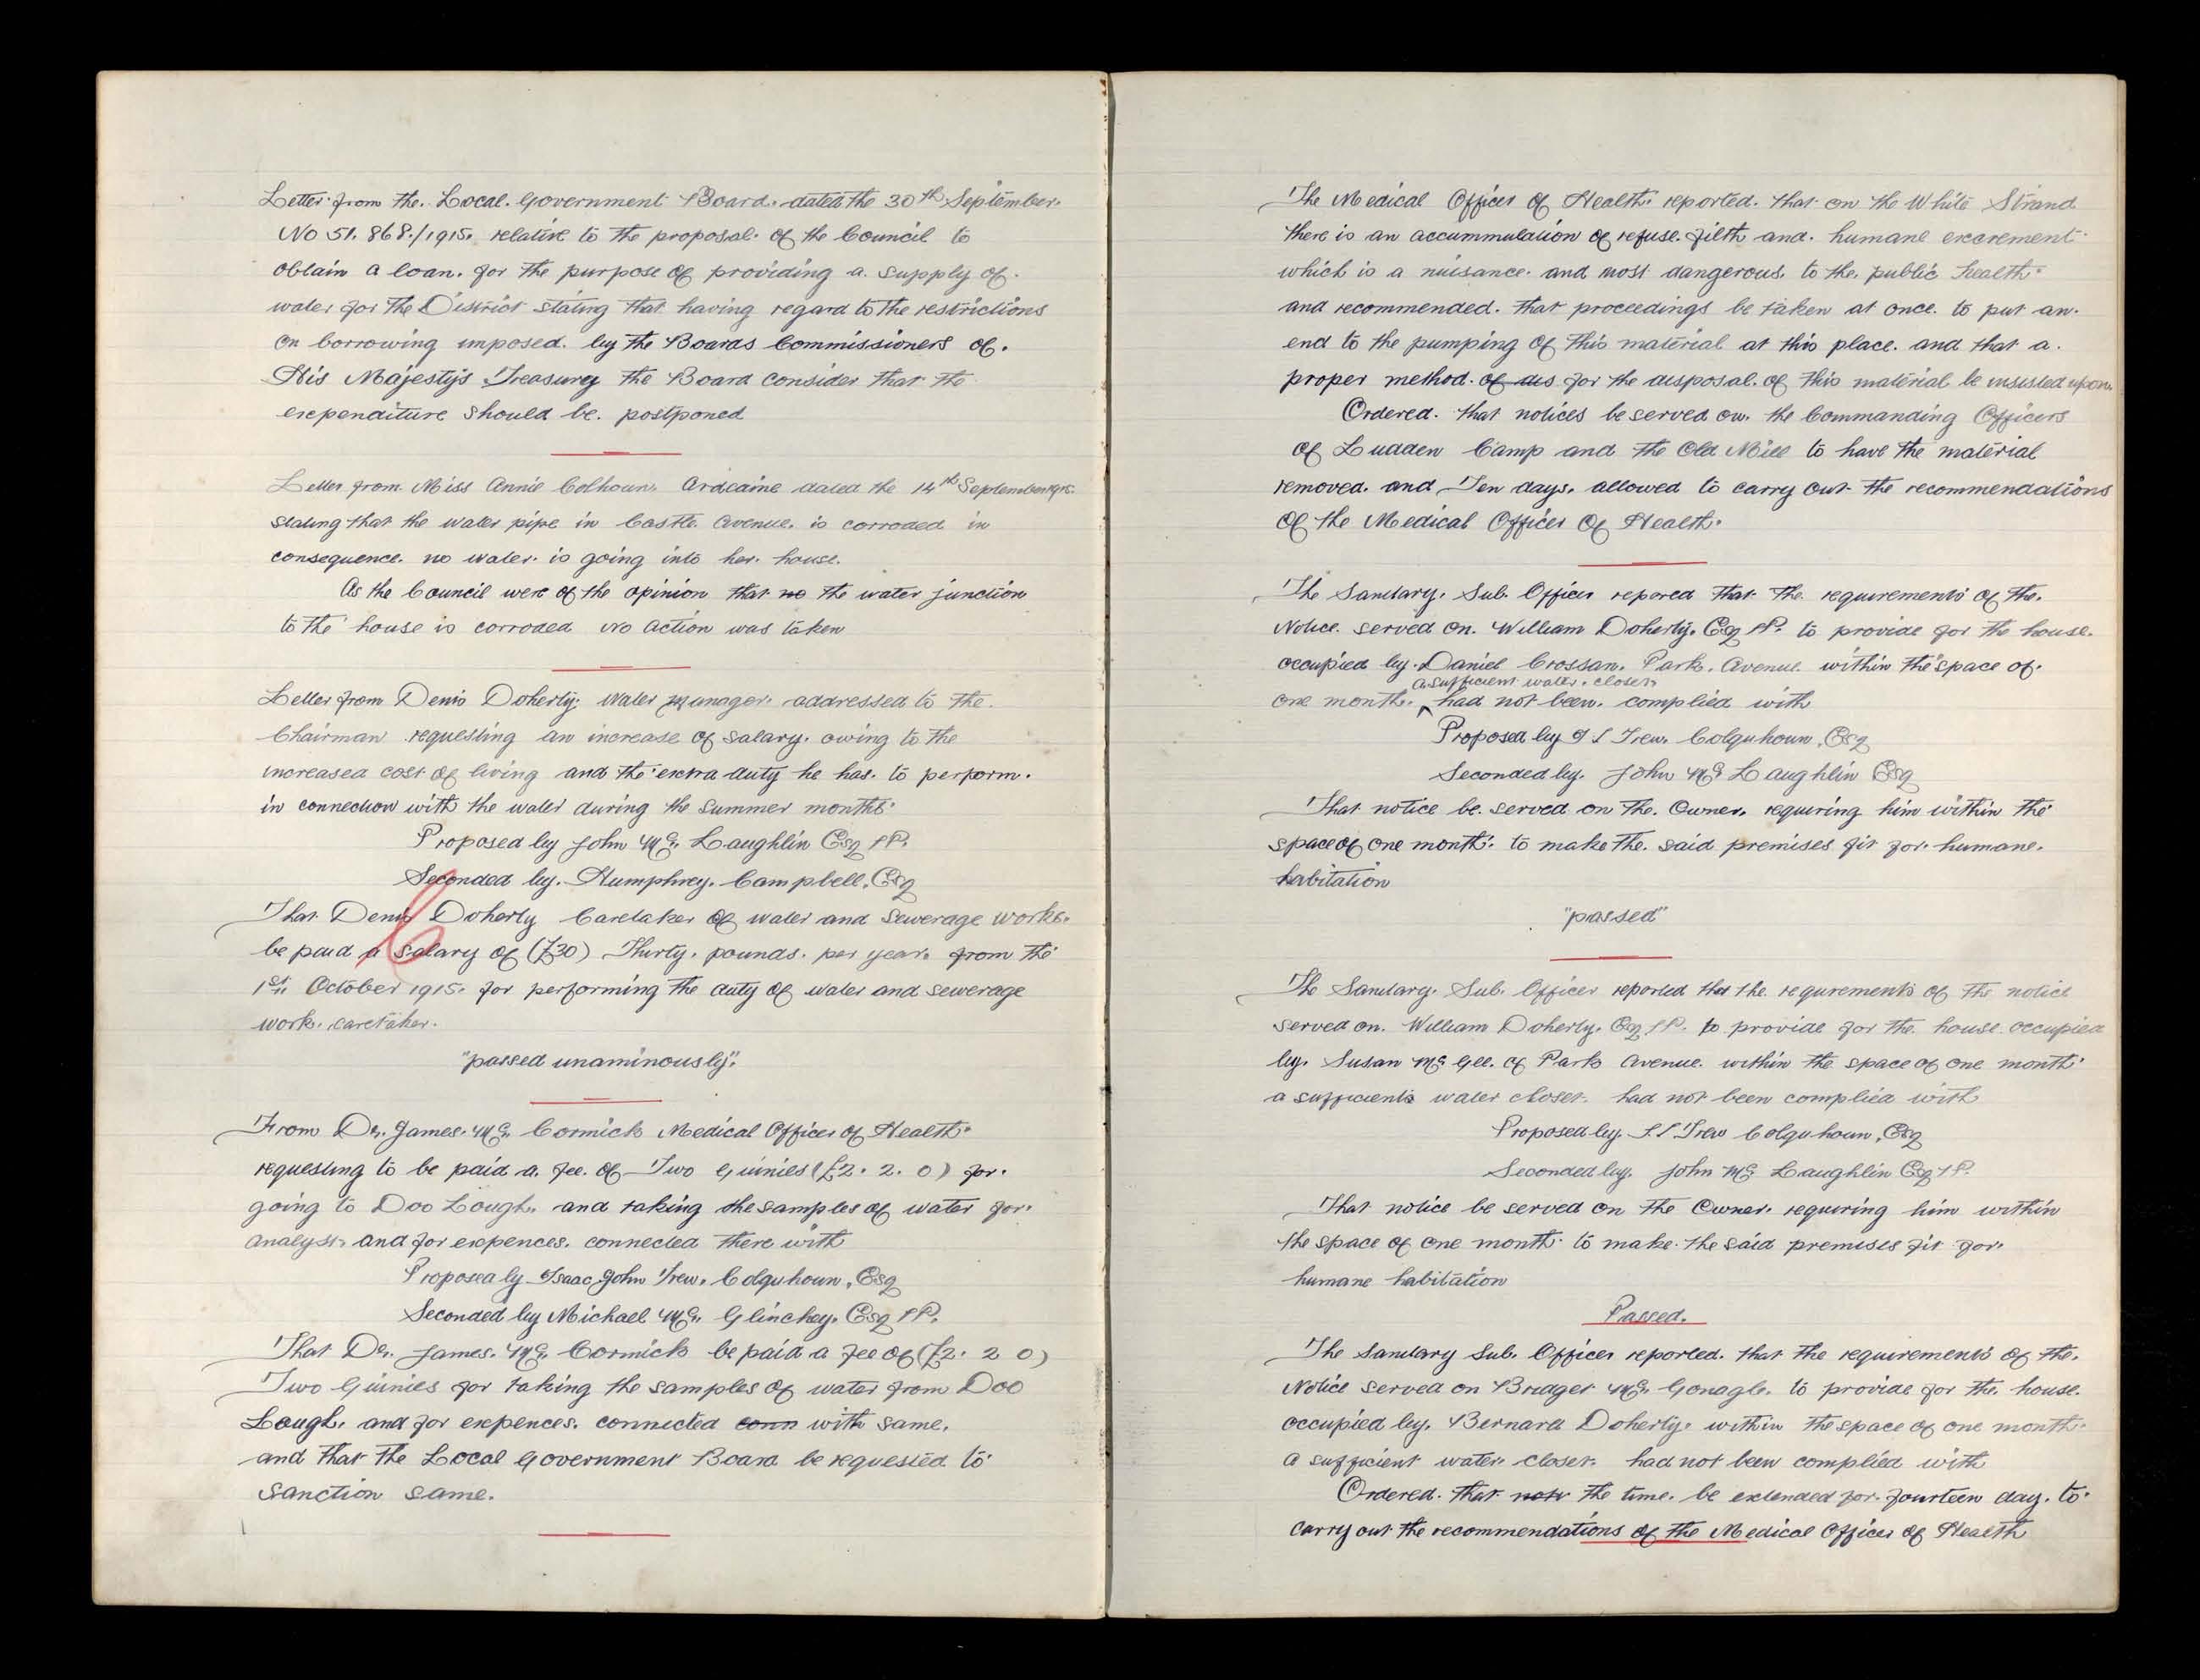 Letter from the Local Government Board dated the 30th September
No 51.868/1915. relative to the proposal of the Council to
obtain a loan for the purpose of providing a supply of
water for the District stating that having regard to the restrictions
on borrowing imposed by the Boards Commissioners of
His Majesty's Treasurey the Board consider that the
expenditure should be postponed
Letter from Miss Annie Colhoun, Ardcaine dated the 14th September 1915.
stating that the water pipe in Castle Avenue is corroded in
consequence no water is going into her house.
As the Council were of the opinion that no the water junction
to the house is corroded No action was taken
Letter from Denis Doherty Water Manager addressed to the
Chairman requesting an increase of salary owing to the
increased cost of living and the extra duty he has to perform
in connection with the water during the summer months
Proposed by John McLaughlin Esq JP.
Seconded by Humphrey Campbell, Esq
That Denis Doherty Caretaker of water and sewerage works
be paid a salary of (£30) Thirty pounds per year from the
1st October 1915. for performing the duty of water and sewerage
work caretaker.
"passed unaminously".
From Dr. James McCormick Medical Officer of Health
requesting to be paid a fee of Two Guinies (£2. 2. 0) for
going to Doo Lough and taking the samples of water for
analysis and for expences connected there with
Proposed by Isaac John Trew Colquhoun, Esq
Seconded by Michael McGlinchey, Esq JP.
That Dr. James McCormick be paid a fee of (£2. 2 0)
Two Guinies for taking the samples of water from Doo
Lough and for expences connected conn with same,
and that the Local Government Board be requested to
sanction same.
The Medical Officer of Health reported that on the White Strand
there is an accummulation of refuse filth and humane excrement
which is a nuisance and most dangerous to the public health
and recommended that proceedings be taken at once to put an
end to the pumping of this material at this place and that a
proper method of dis for the disposal of this material be insisted upon
Ordered that notices be served on the Commanding Officers
of Ludden Camp and the Old Mill to have the material
removed and Ten days allowed to carry out the recommendations
of the Medical Officer of Health.
The Sanitary Sub. Officer repored that the requirements of the
Notice served on William Doherty. Esq JP. to provide for the house
occupied by Daniel Crossan. Park Avenue within the space of
a sufficient water closet
one month had not been complied with
Proposed by I J Trew Colquhoun, Esq
Seconded by John McLaughlin Esq
That notice be served on the Owner requiring him within the
space of one month to make the said premises fit for humane
habitation
"passed"
The Sanitary Sub. Officer reported that the requrements of the notice
served on William Doherty. Esq JP. to provide for the house occupied
by Susan McGee of Park Avenue within the space of one month
a sufficient water closet had not been complied with
Proposed by I.J Trew Colquhoun, Esq
Seconded by John McLaughlin Esq JP.
That notice be served on the Owner requring him within
the space of one month to make the said premises fit for
humane habitation
Passed.
The Sanitary Sub. Officer reported that the requirements of the
Notice served on Bridget McGonagle to provide for the house
occupied by Bernard Doherty within the space of one month
a sufficient water closet had not been complied with
Ordered that the time be extended for fourteen day. to
carry out the recommendations of the Medical Officer of Health